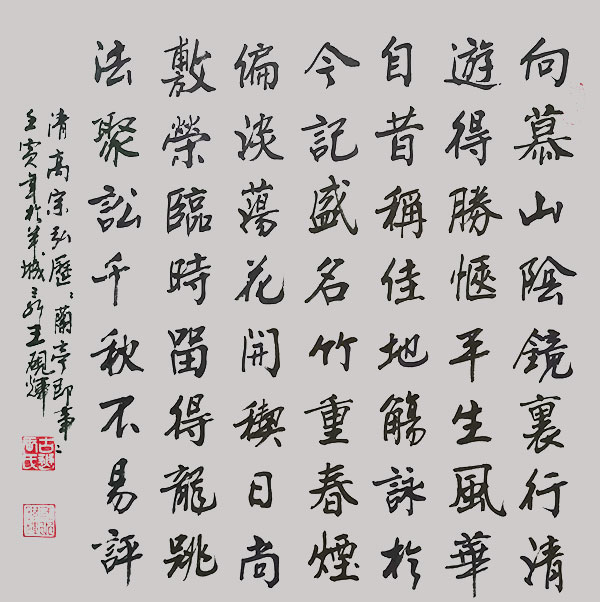 向慕山陰鏡裏行清
遊得勝愜平生風華
自昔稱佳地觴詠於
今記盛名竹重春煙
偏淡蕩花開禊日尚
敷榮臨時畱得龍跳
法聚訟千秋不易評
清高宗弘歷：蘭亭即事：
壬寅年於羊城王硯輝